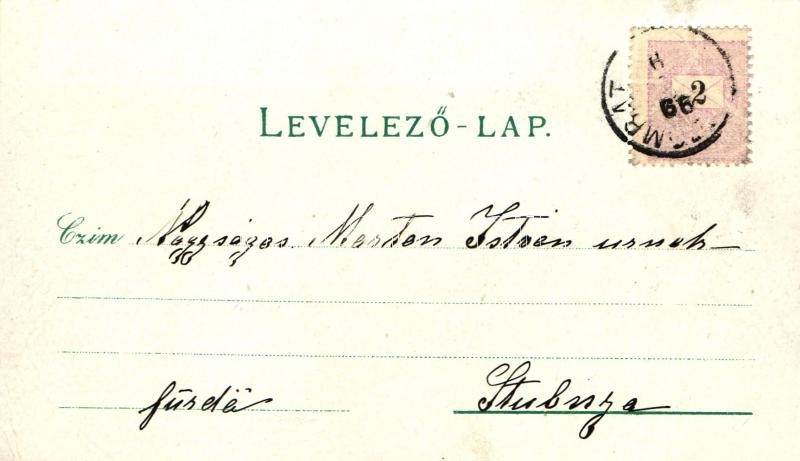 LEVELEZŐ-LAP.
2
99
Czim Nagyságos Marton István urnak
fürdő Stubnya